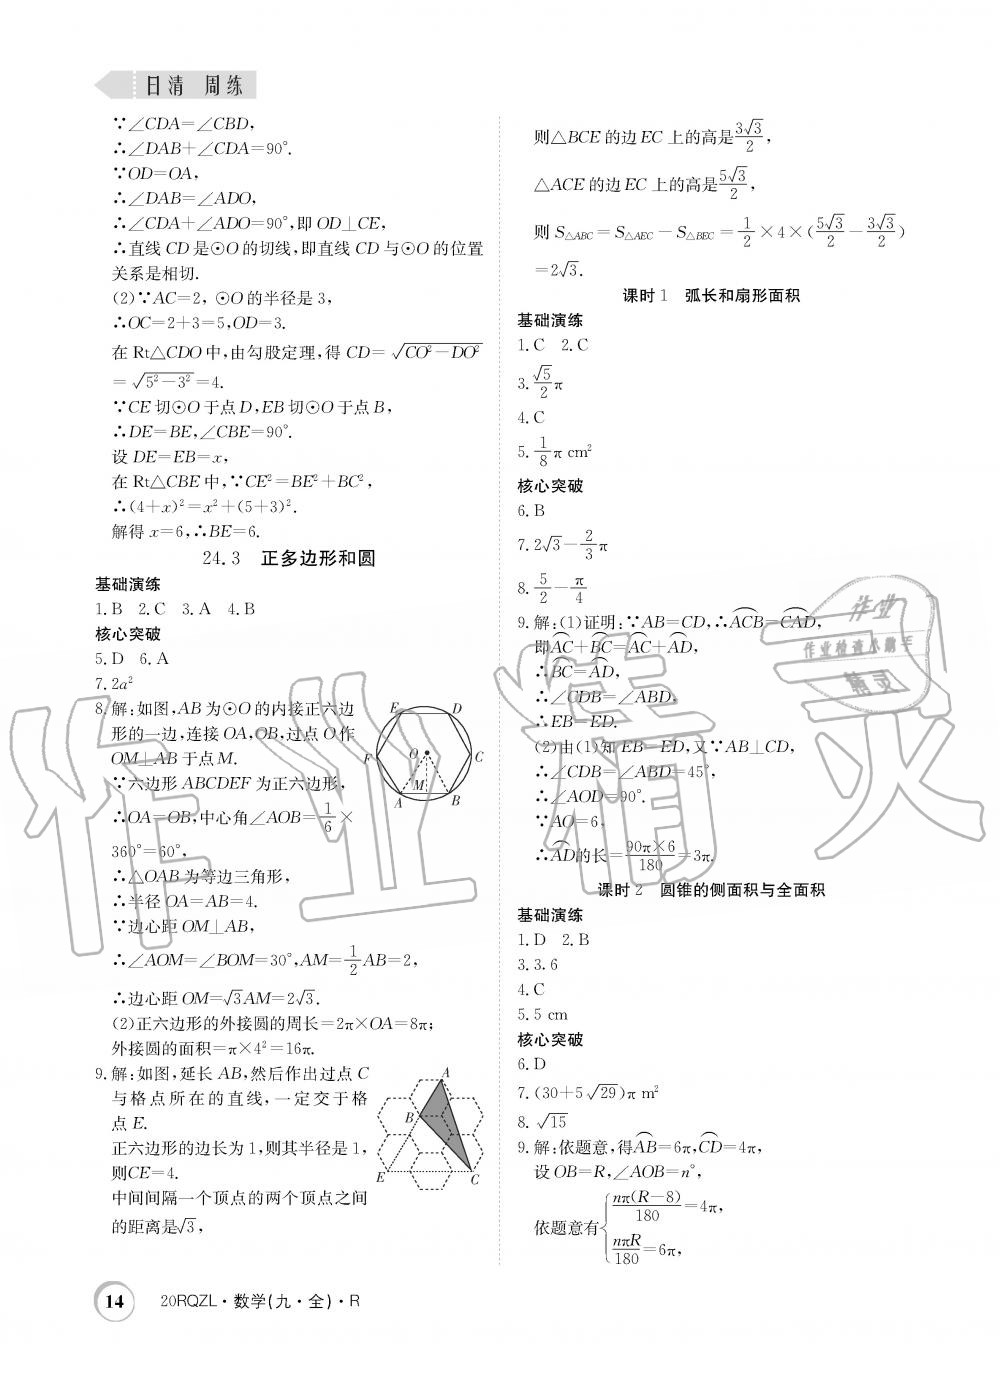 日清 周练
∵∠CDA=∠CBD,
∴∠DAB+∠CDA=90°.
∵OD=OA,
∴∠DAB=∠ADO,
∴∠CDA+∠ADO=90°,即 OD⊥CE,
∴直线 CD 是⊙O 的切线,即直线 CD 与⊙O 的位置
关系是相切.
(2)∵AC=2, ⊙O 的半径是 3,
∴OC=2+3=5,OD=3.
在 Rt△CDO 中,由勾股定理,得 CD=√(CO²-DO²)
=√(5²-3²)=4.
∵CE 切⊙O 于点 D,EB 切⊙O 于点 B,
∴DE=BE,∠CBE=90°.
设 DE=EB=x,
在 Rt△CBE 中,∵CE²=BE²+BC²,
∴(4+x)²=x²+(5+3)².
解得 x=6,∴BE=6.
24.3 正多边形和圆
基础演练
1.B 2.C 3.A 4.B
核心突破
5.D 6.A
7.2a²
8.解:如图,AB 为⊙O 的内接正六边
形的一边,连接 OA,OB,过点 O 作
OM⊥AB 于点 M.
∵六边形 ABCDEF 为正六边形,
∴OA=OB,中心角∠AOB=1/6×
360°=60°,
∴△OAB 为等边三角形,
∴半径 OA=AB=4.
∵边心距 OM⊥AB,
∴∠AOM=∠BOM=30°,AM=1/2AB=2,
∴边心距 OM=√3AM=2√3.
(2)正六边形的外接圆的周长=2π×OA=8π;
外接圆的面积=π×4²=16π.
E D
F O C
M
A B
9.解:如图,延长 AB,然后作出过点 C
与格点所在的直线,一定交于格
点 E.
正六边形的边长为 1,则其半径是 1,
则CE=4.
中间间隔一个顶点的两个顶点之间
的距离是√3,
A
B
E C
则△BCE 的边 EC 上的高是3√3/2,
△ACE 的边 EC 上的高是5√3/2,
则 S△ABC=S△AEC-S△BEC=1/2×4×(5√3/2-3√3/2)
=2√3.
课时 1 弧长和扇形面积
基础演练
1.C 2.C
3.√5/2π
4.C
5.1/8π cm²
核心突破
6.B
7.2√3-2/3π
8.5/2-π/4
9.解:(1)证明:∵AB=CD,∴⌒ACB=⌒CAD,
即⌒AC+⌒BC=⌒AC+⌒AD,
∴⌒BC=⌒AD,
∴∠CDB=∠ABD,
∴EB=ED.
(2)由(1)知 EB=ED,又∵AB⊥CD,
∴∠CDB=∠ABD=45°,
∴∠AOD=90°.
∵AO=6,
∴⌒AD的长=90π×6/180=3π.
课时 2 圆锥的侧面积与全面积
基础演练
1.D 2.B
3.3.6
4.C
5.5 cm
核心突破
6.D
7.(30+5√29)π m²
8.√15
9.解:依题意,得⌒AB=6π,⌒CD=4π,
设 OB=R,∠AOB=n°,
依题意有{nπ(R-8)/180=4π,
nπR/180=6π,
作业精灵
作业
作业检查小助手
精灵
14 20RQZL·数学(九·全)·R